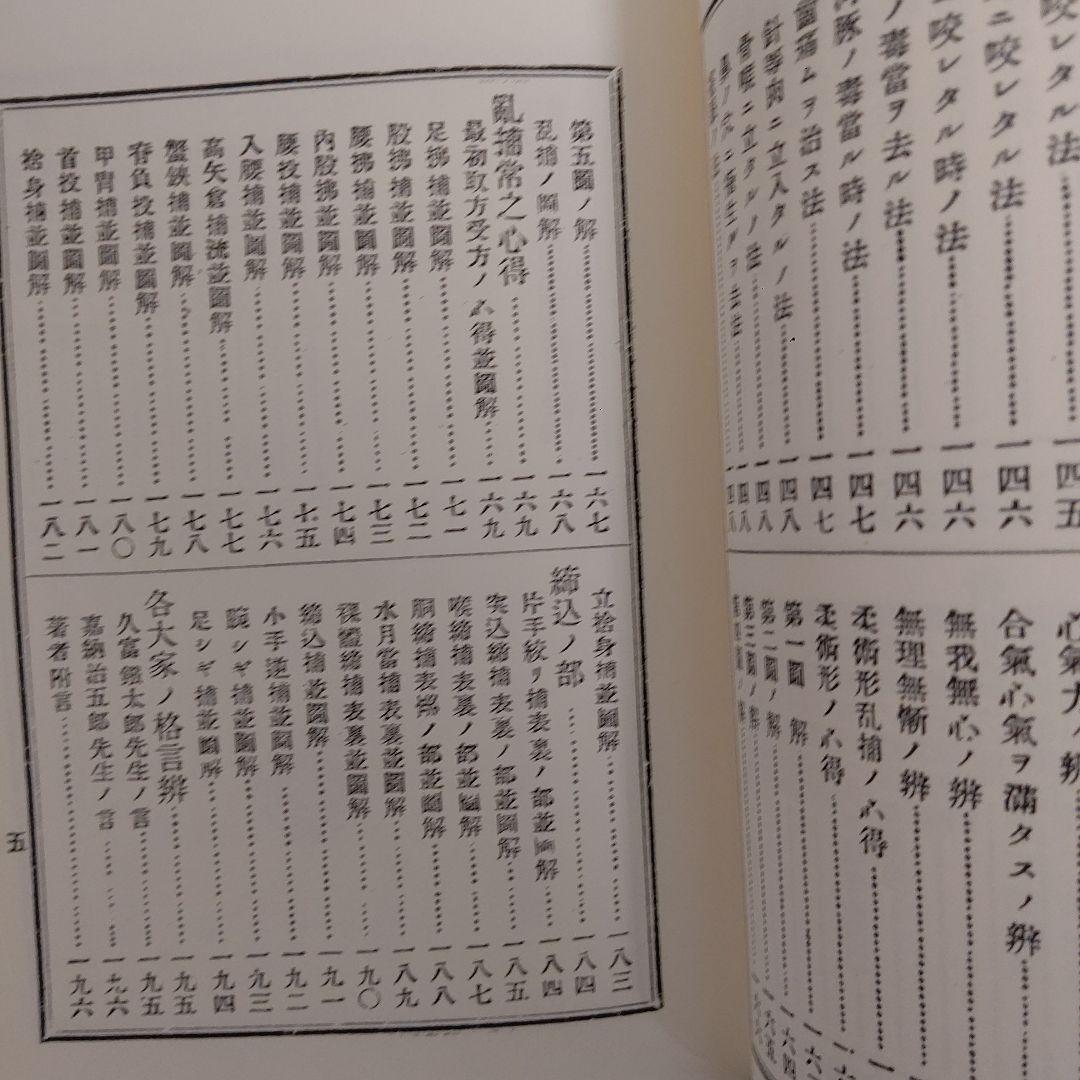 咬レタル法 一四五
ニ咬レタル法 一四六
咬レタル時ノ法 一四六
ノ毒當ヲ去ル法 一四六
河豚ノ毒當ル時ノ法 一四七
齒痛ムヲ治ス法 一四七
針等肉ニ立入タルノ法 一四八
骨喉ニ立タルノ法 一四八
ノ辨
合氣心氣ヲ滿タスノ辨
無我無心ノ辨
無理無慚ノ辨
柔術形乱捕ノ心得
柔術形ノ心得
第一圖解
第二圖ノ解
第三圖ノ解
第五圖ノ解 一六七
乱捕ノ圖解 一六八
亂捕常之心得 一六九
最初取方受方ノ心得並圖解 一六九
足拂捕並圖解 一七一
股拂捕並圖解 一七二
腰拂捕並圖解 一七三
内股拂並圖解 一七四
腰投捕並圖解 一七五
入腰捕並圖解 一七六
高矢倉捕流並圖解 一七七
蟹鋏捕並圖解 一七八
脊負投捕並圖解 一七九
甲冑捕並圖解 一八〇
首投捕並圖解 一八一
捨身捕並圖解 一八二
立捨身捕並圖解 一八三
締込ノ部 一八四
片手絞リ捕表裏ノ部並圖解 一八四
突込締捕表裏ノ部並圖解 一八五
喉締捕表裏ノ部並圖解 一八七
胴締捕表裏ノ部並圖解 一八八
水月當捕表裏並圖解 一八九
裸體締捕表裏並圖解 一九〇
締込捕並圖解 一九一
小手逆捕並圖解 一九二
腕シギ捕並圖解 一九三
足シギ捕並圖解 一九四
各大家ノ格言辨 一九五
久富鐵太郎先生ノ言 一九五
嘉納治五郎先生ノ言 一九六
著者附言 一九六
五